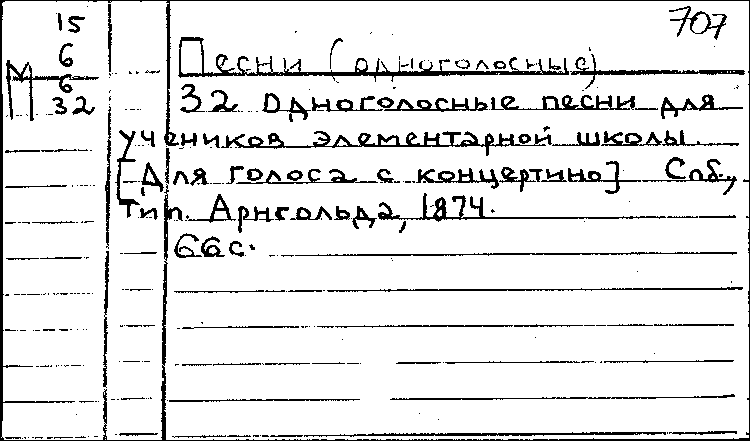 707
15
6
М 6
32
Песни (одноголосные)
32 одноголосные песни для
учеников элементарной школы.
[Для голоса с концертино] Спб.,
Тип. Арнгольда, 1874.
66с.